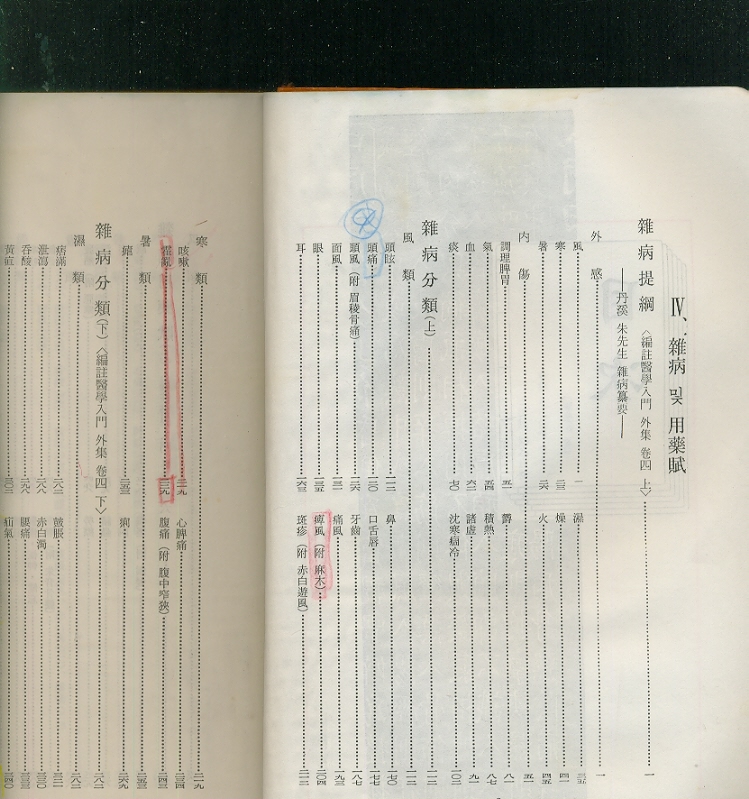 Ⅳ、雜病 및 用藥賦
雜病提綱〈編註醫學入門 外集 卷四 上〉 一
——丹溪 朱先生 雜病纂要——
外感 一
風 一 濕 三五
寒 二三 燥 四一
暑 二六 火 四五
內傷 五一
調理脾胃 五一 鬱 八一
氣 五四 積熱 八七
血 六二 諸虛 九一
痰 七〇 沈寒痼冷 一〇二
雜病分類(上) 一一二
風類 一一二
頭眩 一一二 鼻 一七〇
頭痛 一二〇 口舌唇 一七七
頭風(附 眉稜骨痛) 一二六 牙齒 一八七
面風 一三一 痛風 一九三
眼 一三五 痺風(附 麻木) 二〇四
耳 一六三 斑疹(附 赤白遊風) 二一三
寒類 二一九
咳嗽 二一九 心脾痛 二三四
霍亂 二三九 腹痛(附 腹中窄狹) 二四三
暑類 二五三
瘧 二五三 痢 二六九
雜病分類(下)〈編註醫學入門 外集 卷四 下〉 二八二
濕類 二八二
痞滿 二八二 鼓脹 三二一
泄瀉 二八八 赤白濁 三三〇
吞酸 二九八 腰痛 三三三
黃疸 三〇三 疝氣 三四〇